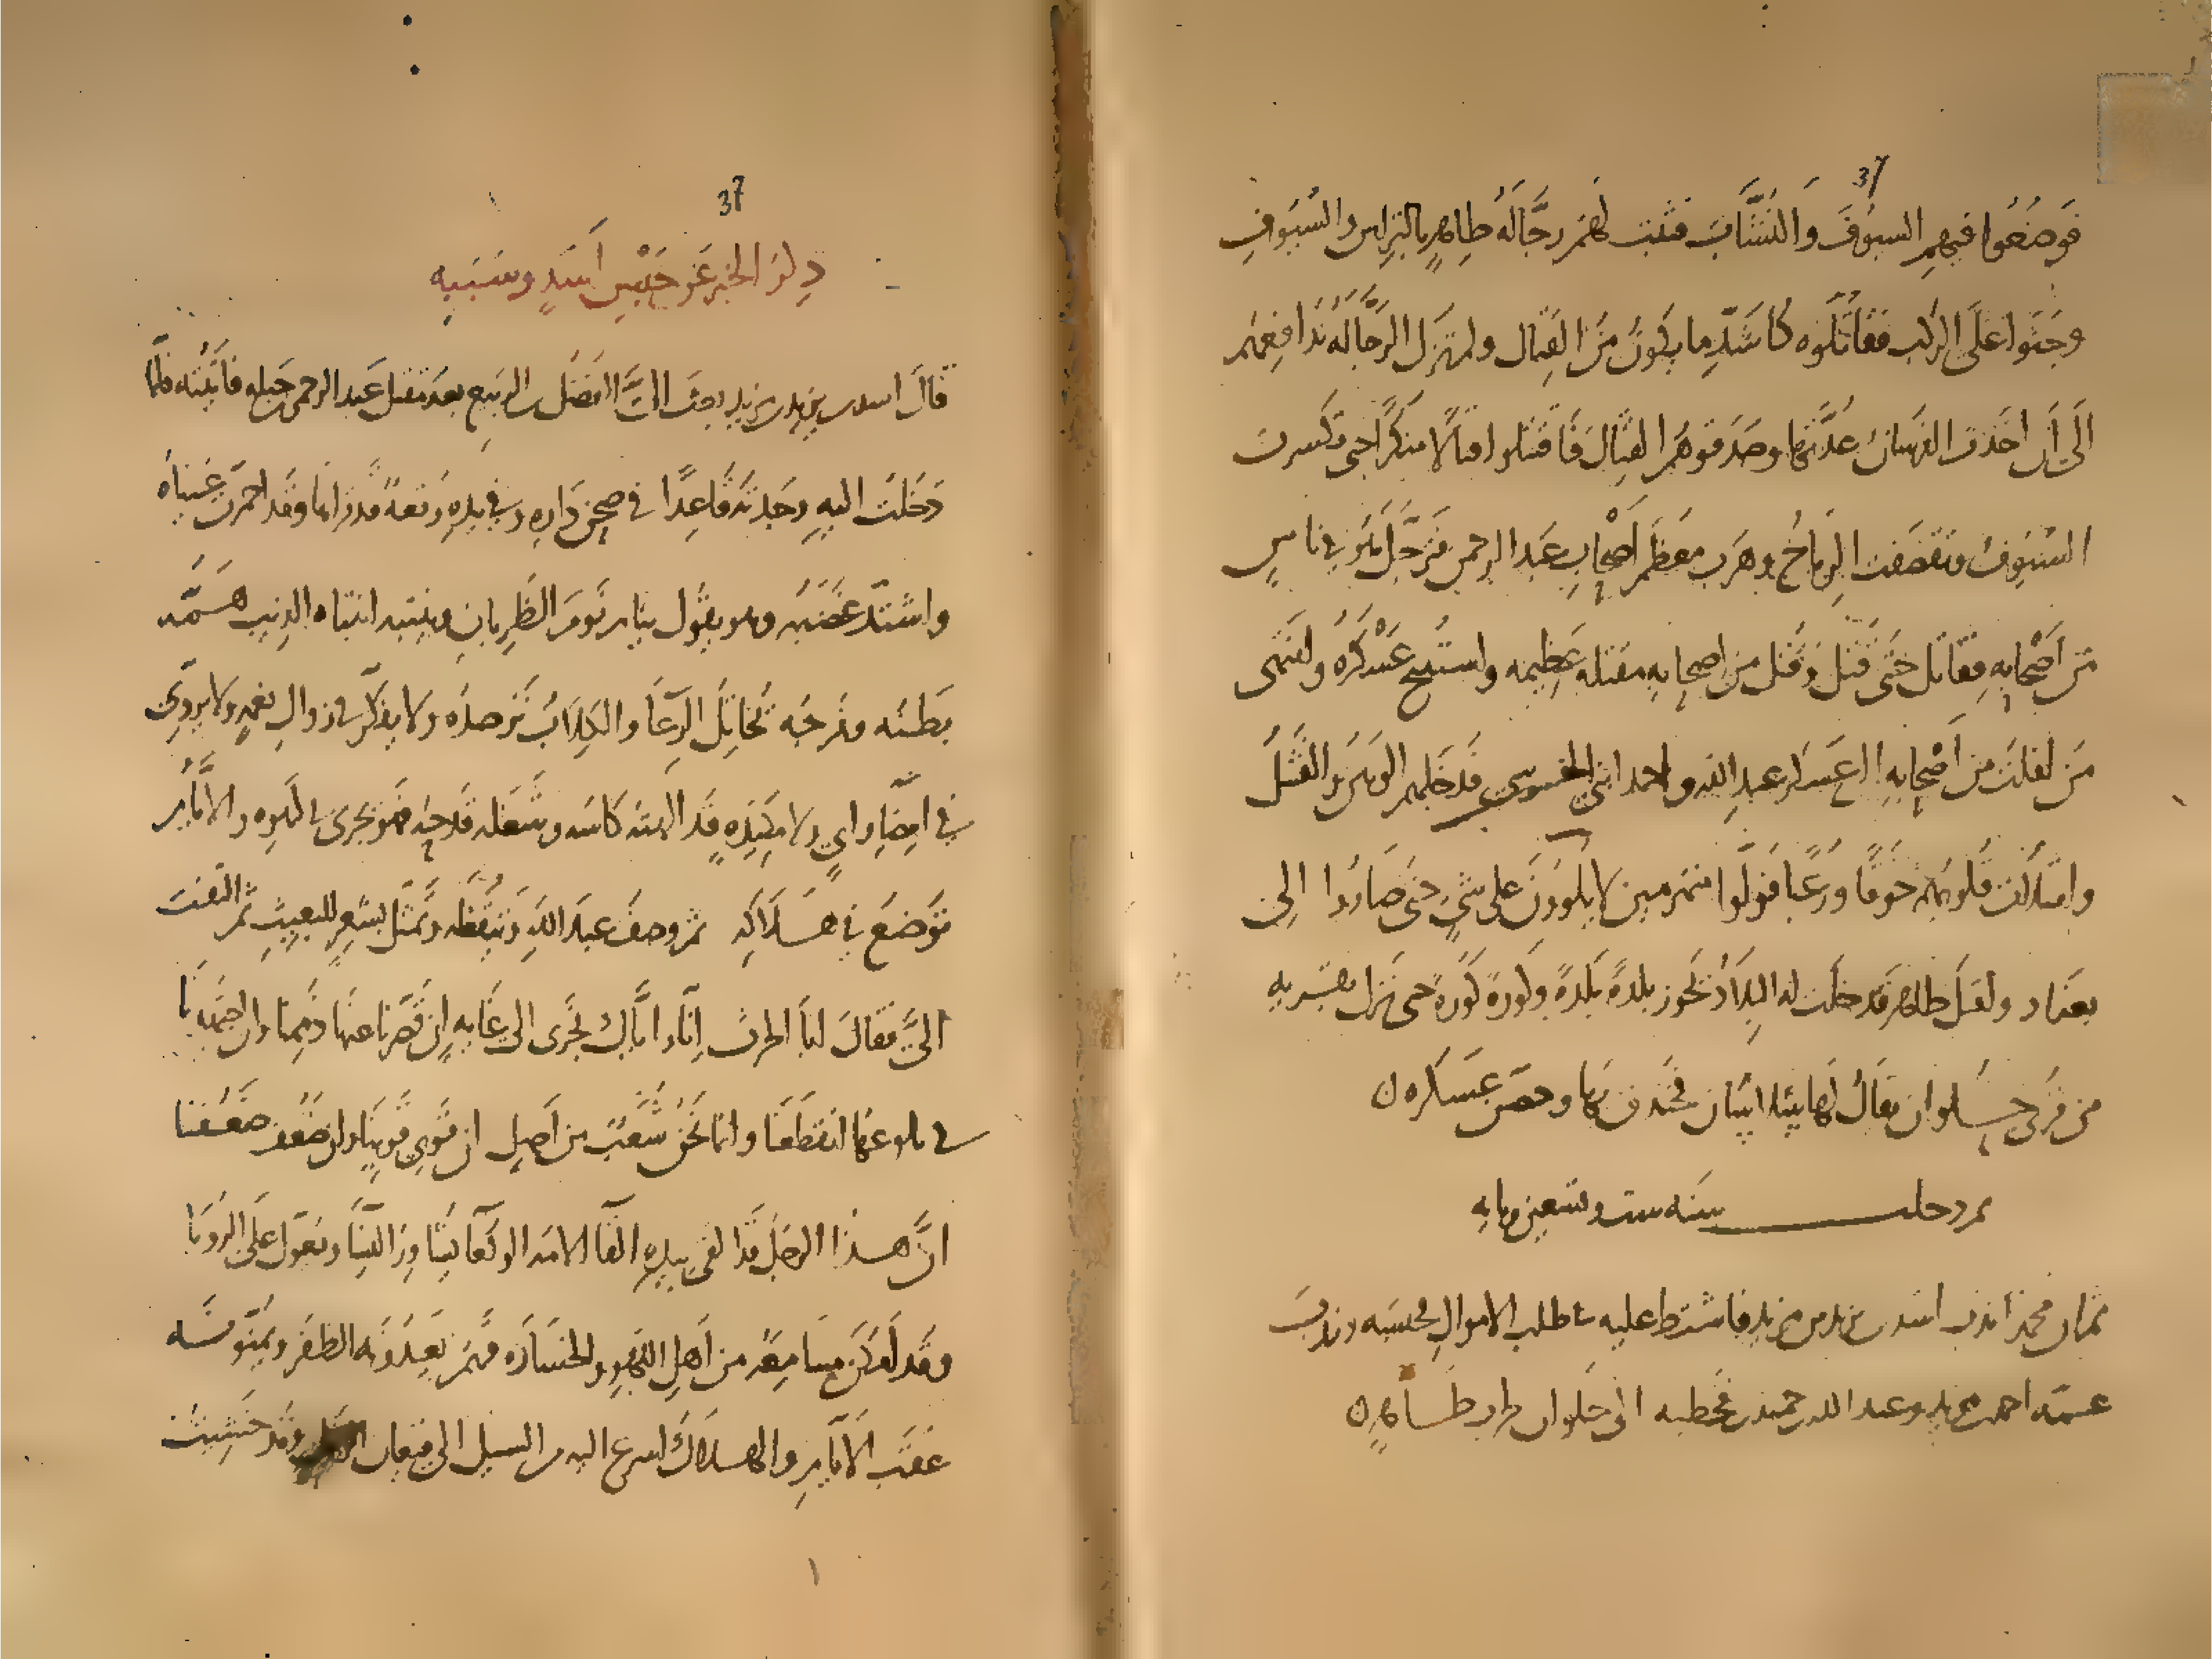 37
فوضعوا فيهم السيوف والنشاب فثبت لهم رجالة طاهر بالتراس والسيوف
وجثوا على الركب فقاتلوه كأشد ما يكون من القتال ولم تزل الرجالة تدافعهم
الى أن اخذت الفرسان عدتها وصدقوهم القتال فاقتتلوا قتالا منكرا حتى تكسرت
السيوف وتقصفت الرماح وهرب معظم أصحاب عبد الرحمن فترجل هو في ناس
من أصحابه فقاتل حتى قتل وقتل من اصحابه مقتلة عظيمه واستبيح عسكره وانتهى
من افلت من أصحابه الى عسكر عبد الله واحمد ابني الحرسي فدخلهم الوهن والفشل
وامتلات قلوبهم خوفا ورعبا فولوا منهزمين لا يلوون على شي حتى صاروا الى
بغداد واقبل طاهر قد خلت له البلاد يحوز بلدة بلدة وكورة كورة حتى نزل بقريه
من قرى حلوان يقال لها شلاشان فخندق بها وحصن عسكره
ثم دخلت سنه ست وتسعين ومايه
ثم ان محمدا ندب اسد بن يزيد بن مزيد فاشتط عليه في طلب الاموال فحبسه وندب
عمه احمد بن مزيد وعبد الله بن حميد بن قحطبه الى حلوان لحرب طاهر
37
ذكر الخبر عن حبس أسد وسببه
قال اسد بن يزيد بن مزيد بعث الي الفضل بن الربيع بعد مقتل عبد الرحمن بن جبله فاتيته فلما
دخلت اليه وجدته قاعدا في صحن داره وفي يده رقعة قد قراها وقد احمرت عيناه
واشتد غضبه وهو يقول ينام نوم الظربان وينتبه انتباه الذيب همه
بطنه وفرجه تخاتل الرعا والكلاب ترصده ولا يفكر في زوال نعمه ولا يروي
في امضا راي ولا مكيده قد الهته كاسه وشغله قدحه فهو يجرى في لهوه والايام
توضع في هلاكه ثم وصف عبد الله وتيقظه وتمثل بشعر للبعيث ثم التفت
الي فقال ابا الحرث انا واياك نجرى الى غايه إن قصرنا عنها ذممنا وان اجتهدنا
في بلوغها انقطعنا وانما نحن شعب من أصل ان قوي قوينا وان ضعف ضعفنا
ان هذا الرجل قد القى بيده القا الامه الوكعا يشاور النسا ويعول على الرويا
وقد امكن مسامعه من أهل اللهو والخساره فهم يعدونه الظفر ويمنونه
عقب الأيام والهلاك اسرع اليه من السيل الى قيعان الرمل وقد خشيت